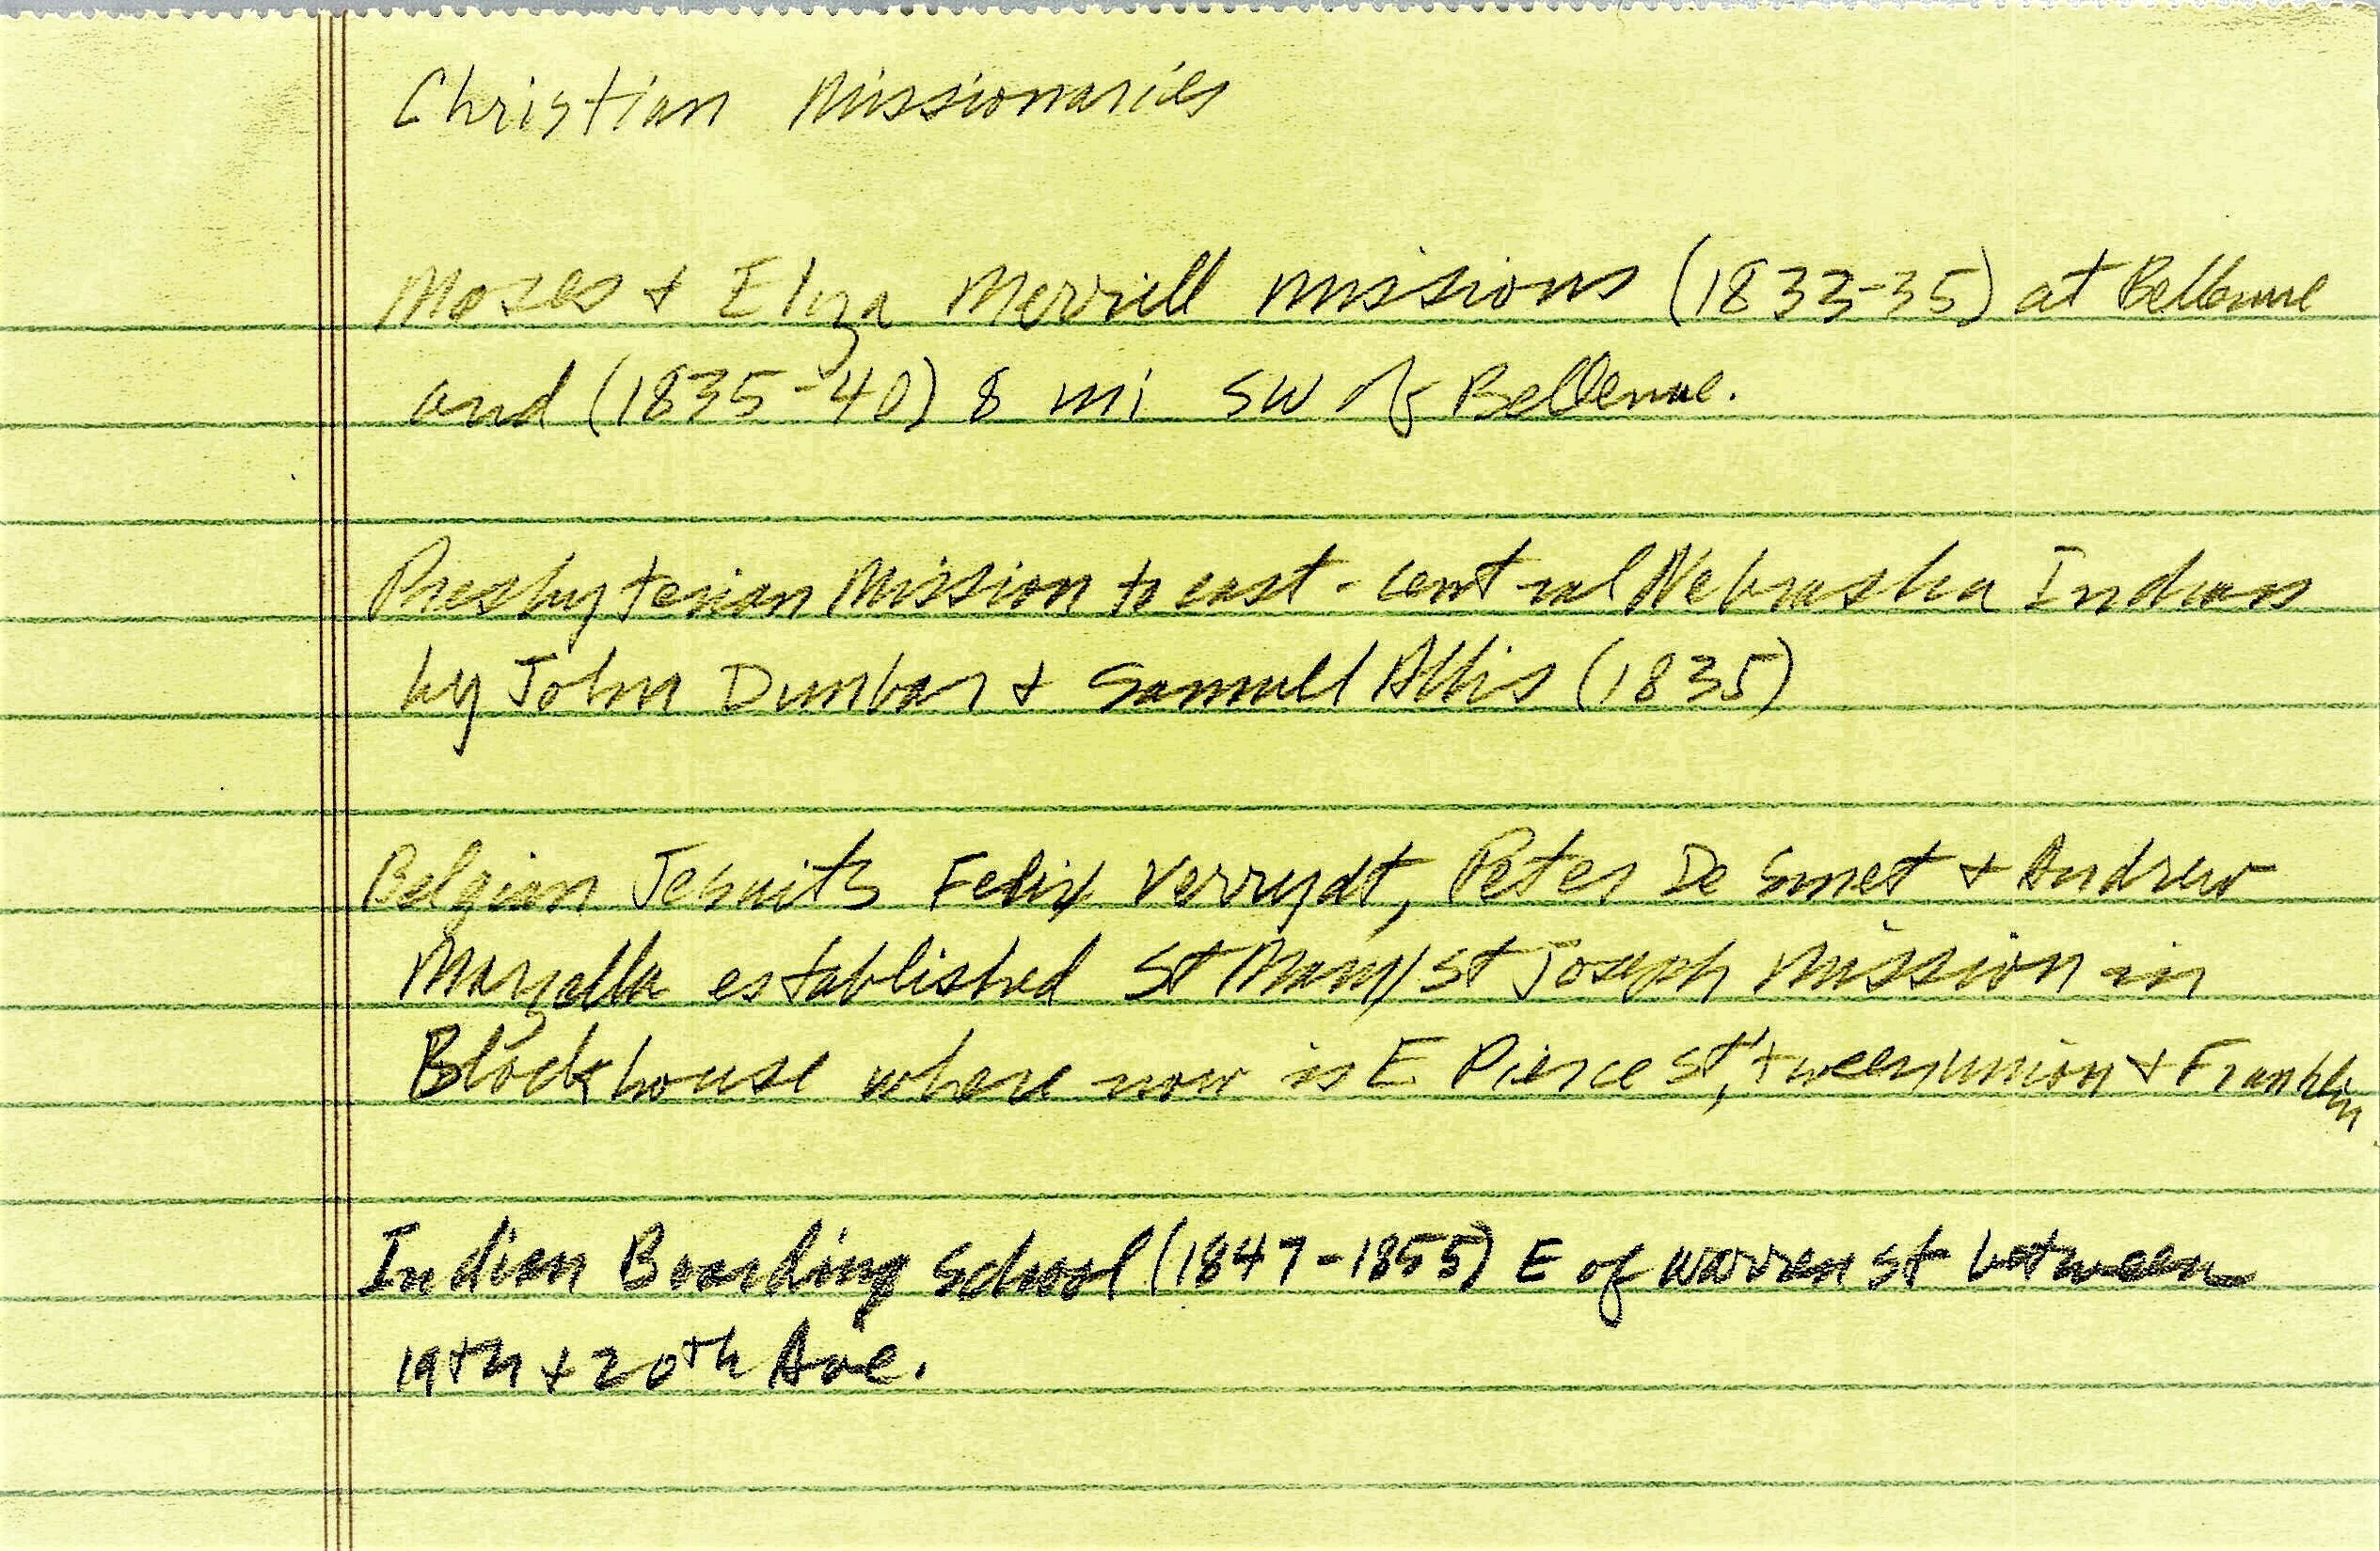 Christian Missionaries
Moses + Eliza Merrill missions (1833-35) at Bellevue
and (1835-40) 8 mi SW of Bellevue.
Presbyterian Mission to east-central Nebraska Indians
by John Dunbar + Samuel Allis (1835)
Belgian Jesuits Felix Verrydt, Peter De Smet + Andrew
Mazzella established St Mary/St Joseph Mission in
Blockhouse where now is E Pierce St, 'tween Union + Franklin
Indian Boarding School (1847-1855) E of Warren St between
19th + 20th Ave.